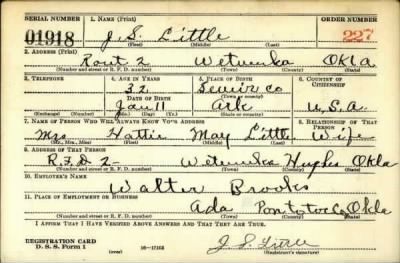 SERIAL NUMBER 1. NAME (Print) ORDER NUMBER
01918 J. S. Little 227
(First) (Middle) (Last)
2. ADDRESS (Print)
Rout 2 Wetumka Okla
(Number and street or R. F. D. number) (Town) (County) (State)
3. TELEPHONE 4. AGE IN YEARS 5. PLACE OF BIRTH 6. COUNTRY OF CITIZENSHIP
32 Sevier co
DATE OF BIRTH (Town or county)
Jan 11 Ark U.S.A.
(Exchange) (Number) (Mo.) (Day) (Yr.) (State or country)
7. NAME OF PERSON WHO WILL ALWAYS KNOW YOUR ADDRESS 8. RELATIONSHIP OF THAT PERSON
Mrs Hattie May Little Wife
(Mr., Mrs., Miss) (First) (Middle) (Last)
9. ADDRESS OF THAT PERSON
R.F.D 2- Wetumka Hughes Okla
(Number and street or R. F. D. number) (Town) (County) (State)
10. EMPLOYER'S NAME
Walter Brooks
11. PLACE OF EMPLOYMENT OR BUSINESS
Ada Pontotoc Co Okla
(Number and street or R. F. D. number) (Town) (County) (State)
I AFFIRM THAT I HAVE VERIFIED ABOVE ANSWERS AND THAT THEY ARE TRUE.
REGISTRATION CARD
D. S. S. Form 1 (over) 16-17105 J. S. Little
(Registrant's signature)